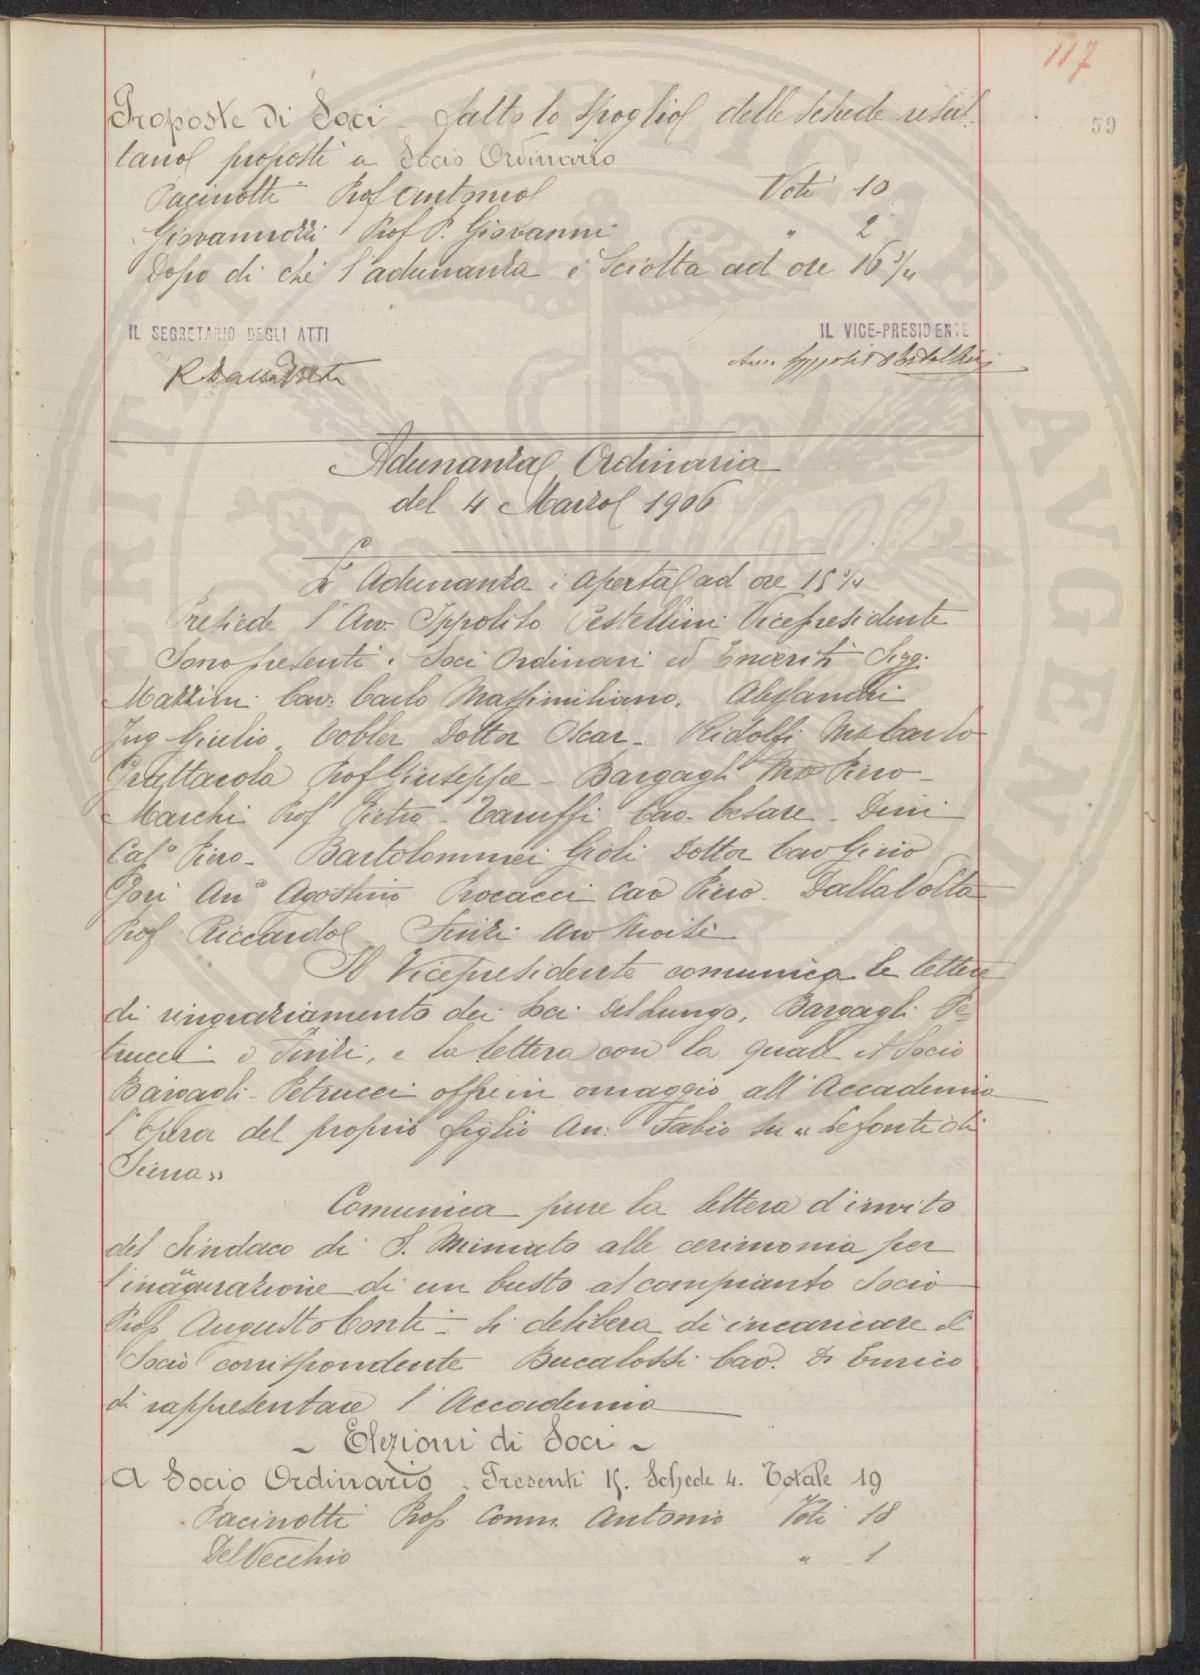 117
59
Proposte di Soci - Fatto lo spoglio delle schede resul-
tano proposti a Socio Ordinario
Pacinotti Prof Antonio Voti 10
Giovannozzi Prof P. Giovanni " 2
Dopo di che l'adunanza è sciolta ad ore 16 3/4
IL SEGRETARIO DEGLI ATTI IL VICE-PRESIDENTE
R Dalla Volta
Adunanza Ordinaria
del 4 Marzo 1906
L'Adunanza è aperta ad ore 15 3/4
Presiede l'Avv. Ippolito Pestellini Vicepresidente
Sono presenti i Soci Ordinari ed Emeriti Sigg:
Mazzini Cav: Carlo Massimiliano. Alessandri
Ing Giulio, Tobler Dottor Oscar - Ridolfi Mse Carlo
Grattarola Prof Giuseppe - Bargagli Mse Piero -
Marchi Prof Pietro - Taruffi Cav. Cesare - Dini
Piero - Bartolommei Gioli Dottor Cav Gino
Gori Agostino Procacci Cav Piero - Dalla Volta
Prof Riccardo Finzi Avv Moisè
Il Vicepresidente comunica le lettere
di ringraziamento dei Soci Del Lungo, Bargagli Pe-
trucci e Finzi, e la lettera con la quale il Socio
Bargagli-Petrucci offre in omaggio all'Accademia
l'opera del proprio figlio Fabio su "Le fonti di
Siena"
Comunica pure la lettera d'invito
del Sindaco di S. Miniato alle cerimonia per
l'inaugurazione di un busto al compianto Socio
Prof Augusto Conti - Si delibera di incaricare il
Socio corrispondente Bucalossi Cav. Dr Enrico
di rappresentare l'Accademia
~ Elezioni di Soci ~
A Socio Ordinario - Presenti 15. Schede 4. Totale 19
Pacinotti Prof Comm. Antonio Voti 18
Del Vecchio " 1